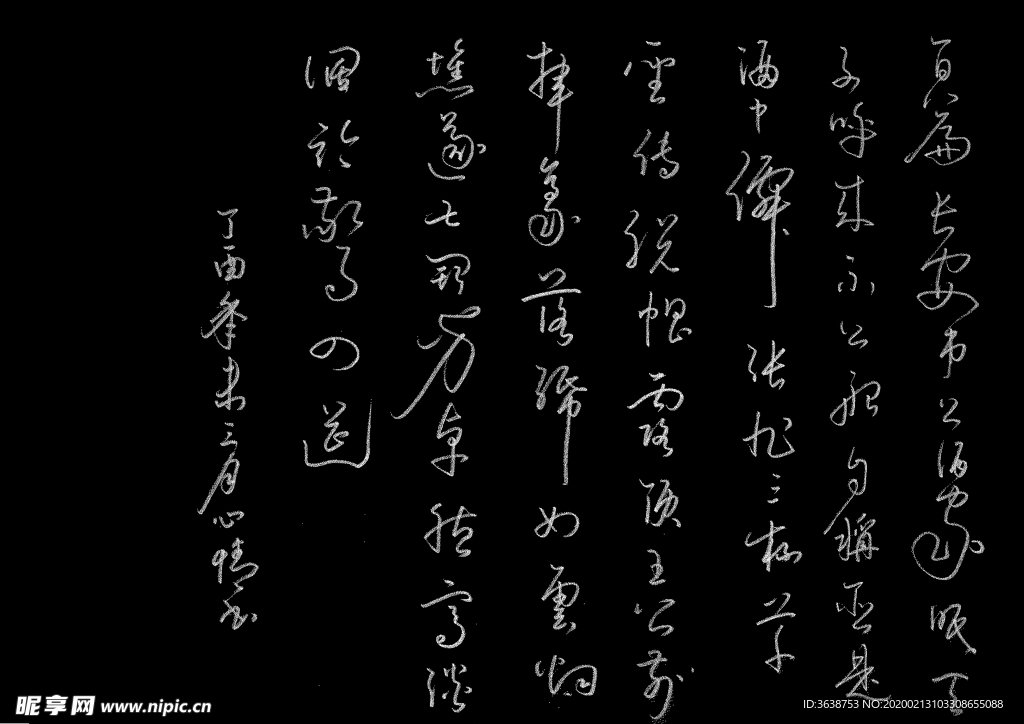 百篇長安市上酒家眠天
子呼来不上船自稱臣是
酒中僊張旭三杯草
聖傳脱帽露頂王公前
揮毫落紙如雲烟
焦遂五斗方卓然高談
四筵
丁酉三月心
昵享网 www.nipic.cn
ID:3638753 NO:20200213103308655088